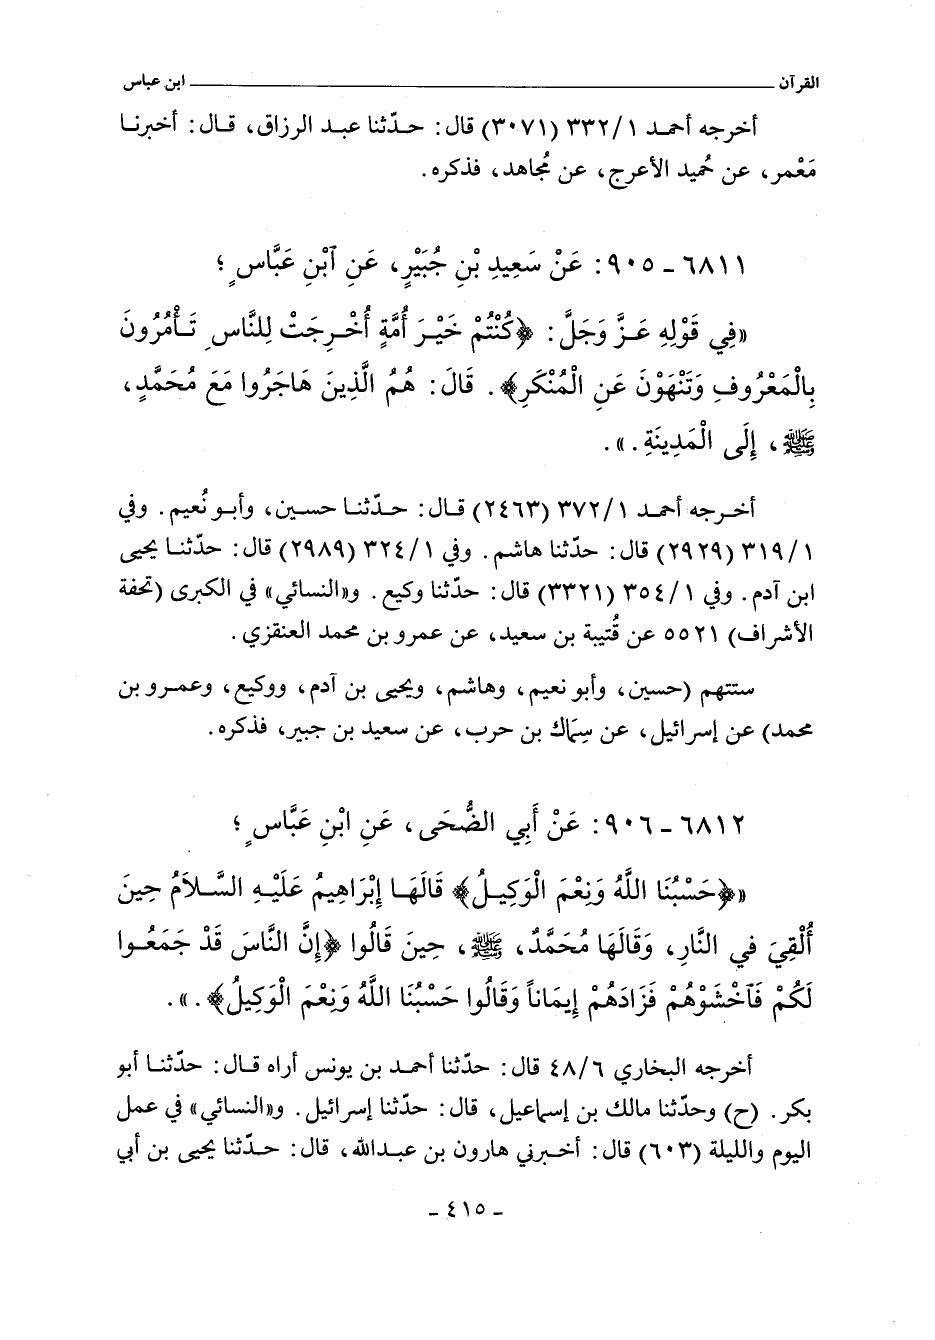 القرآن ــــــــــــــــــــــــــــــــ ابن عباس
أخرجه أحمد ١/ ٣٣٢ (٣٠٧١) قال: حدّثنا عبد الرزاق، قال: أخبرنا
مَعْمر، عن حُميد الأعرج، عن مُجاهد، فذكره.
٦٨١١ - ٩٠٥: عَنْ سَعِيدِ بْنِ جُبَيْرٍ، عَنِ ٱبْنِ عَبَّاسٍ؛
«فِي قَوْلِهِ عَزَّ وَجَلَّ: ﴿كُنْتُمْ خَيْرَ أُمَّةٍ أُخْرِجَتْ لِلنَّاسِ تَأْمُرُونَ
بِالْمَعْرُوفِ وَتَنْهَوْنَ عَنِ الْمُنْكَرِ﴾. قَالَ: هُمُ الَّذِينَ هَاجَرُوا مَعَ مُحَمَّدٍ،
ﷺ، إِلَى الْمَدِينَةِ.».
أخرجه أحمد ١/ ٣٧٢ (٢٤٦٣) قال: حدّثنا حسين، وأبو نُعيم. وفي
١/ ٣١٩ (٢٩٢٩) قال: حدّثنا هاشم. وفي ١/ ٣٢٤ (٢٩٨٩) قال: حدّثنا يحيى
ابن آدم. وفي ١/ ٣٥٤ (٣٣٢١) قال: حدّثنا وكيع. و«النسائي» في الكبرى (تحفة
الأشراف) ٥٥٢١ عن قُتيبة بن سعيد، عن عمرو بن محمد العنقزي.
ستتهم (حسين، وأبو نعيم، وهاشم، ويحيى بن آدم، ووكيع، وعمرو بن
محمد) عن إسرائيل، عن سِمَاك بن حرب، عن سعيد بن جبير، فذكره.
٦٨١٢ - ٩٠٦: عَنْ أَبِي الضُّحَى، عَنِ ابْنِ عَبَّاسٍ؛
«﴿حَسْبُنَا اللَّهُ وَنِعْمَ الْوَكِيلُ﴾ قَالَهَا إِبْرَاهِيمُ عَلَيْهِ السَّلَامُ حِينَ
أُلْقِيَ فِي النَّارِ، وَقَالَهَا مُحَمَّدٌ، ﷺ، حِينَ قَالُوا ﴿إِنَّ النَّاسَ قَدْ جَمَعُوا
لَكُمْ فَٱخْشَوْهُمْ فَزَادَهُمْ إِيمَاناً وَقَالُوا حَسْبُنَا اللَّهُ وَنِعْمَ الْوَكِيلُ﴾.».
أخرجه البخاري ٦/ ٤٨ قال: حدّثنا أحمد بن يونس أراه قال: حدّثنا أبو
بكر. (ح) وحدّثنا مالك بن إسماعيل، قال: حدّثنا إسرائيل. و«النسائي» في عمل
اليوم والليلة (٦٠٣) قال: أخبرني هارون بن عبدالله، قال: حدّثنا يحيى بن أبي
- ٤١٥ -